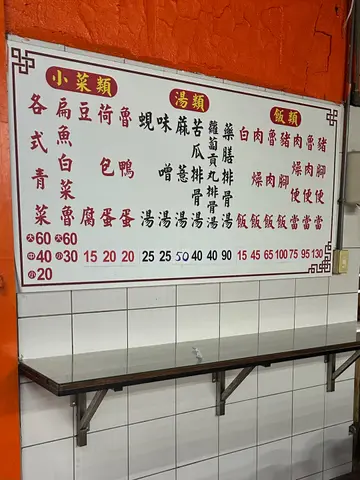 小菜類
各式青菜 大60 中40 小20
扁魚白菜魯 大60 小30
豆腐 15
荷包蛋 20
魯鴨蛋 20
湯類
蜆湯 25
味噌湯 25
麻薏湯 50
苦瓜排骨湯 40
蘿蔔貢丸排骨湯 40
藥膳排骨湯 90
飯類
白飯 15
肉燥飯 45
魯肉飯 65
豬腳飯 100
肉燥便當 75
魯肉便當 95
豬腳便當 130